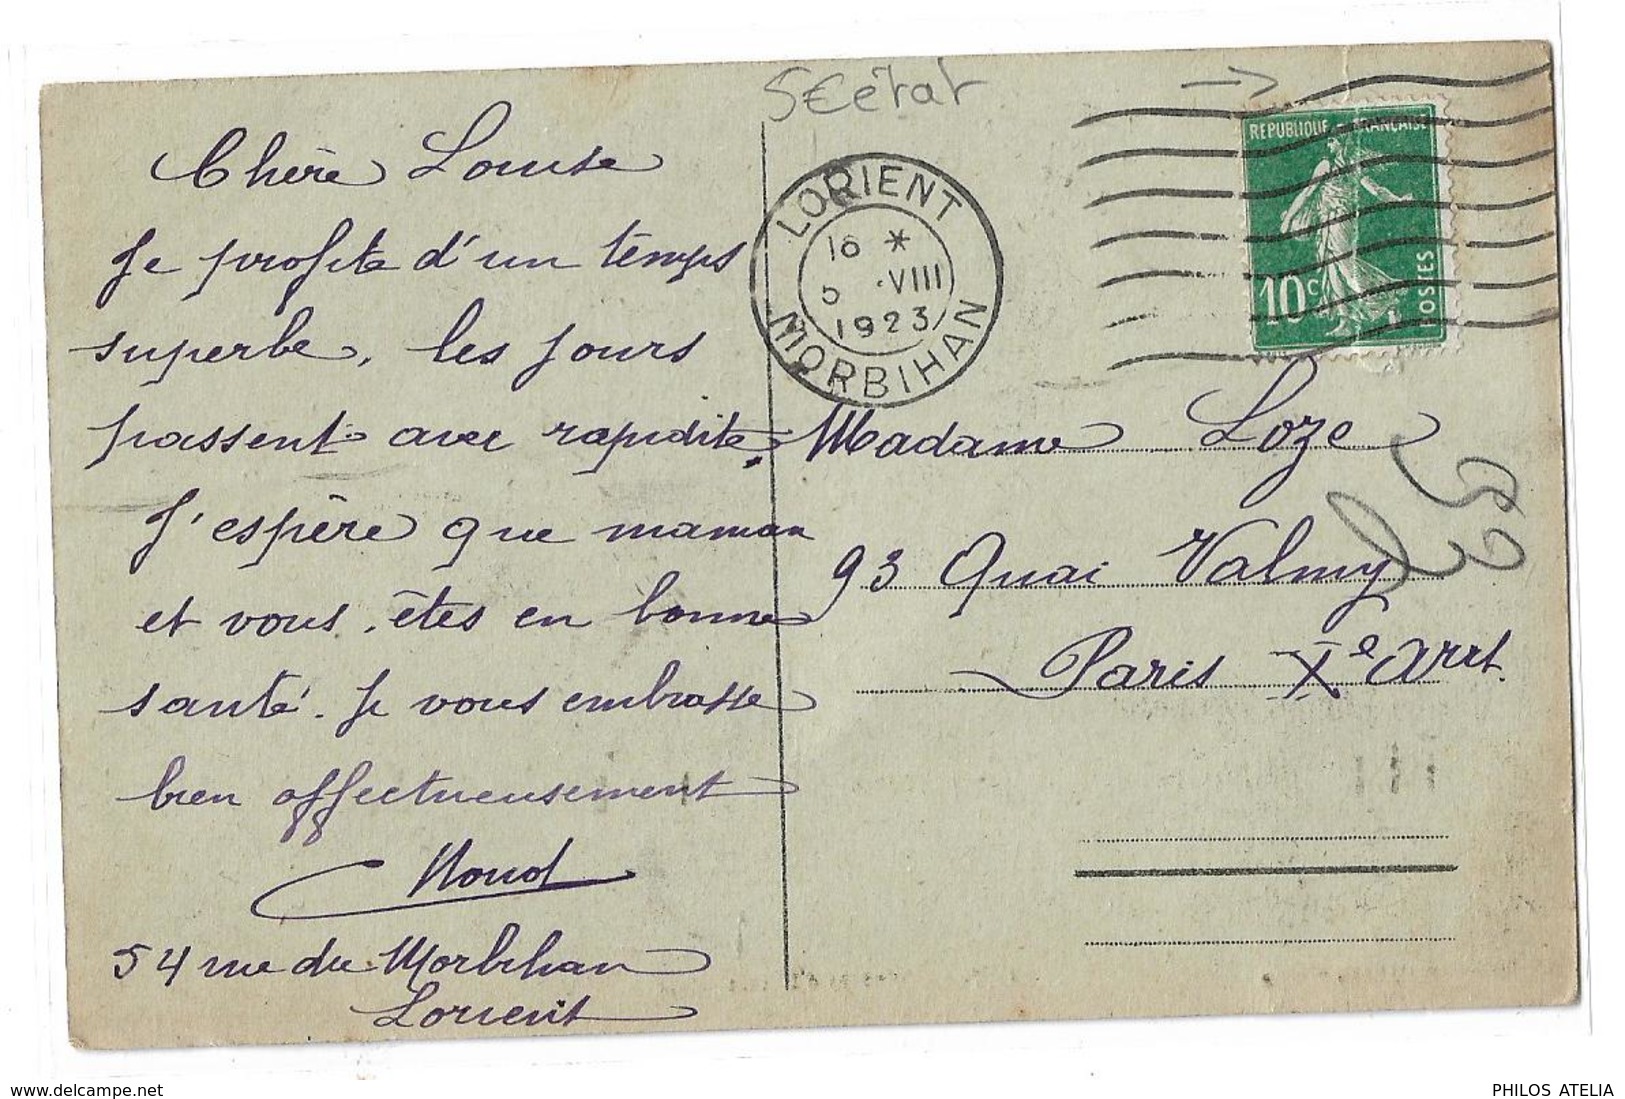 5€ état
Chère Louise
Je profite d'un temps
superbe, les jours
passent avec rapidité.
J'espère que maman
et vous êtes en bonne
santé. Je vous embrasse
bien affectueusement
54 rue du Morbihan
Lorient
LORIENT
16 *
5 VIII
1923
MORBIHAN
REPUBLIQUE FRANÇAISE
10c
POSTES
Madame Loze
93 Quai Valmy
Paris Xe Arrt.
www.delcampe.net
PHILOS ATELIA